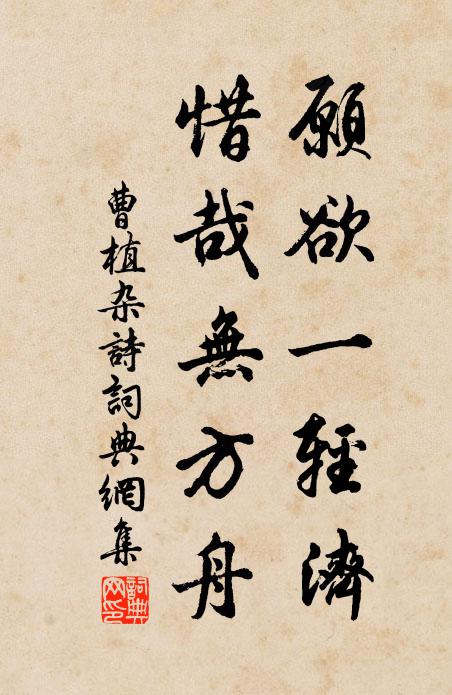 願欲一輕濟
惜哉無方舟
曹植杂詩詞典網集
詞典網印